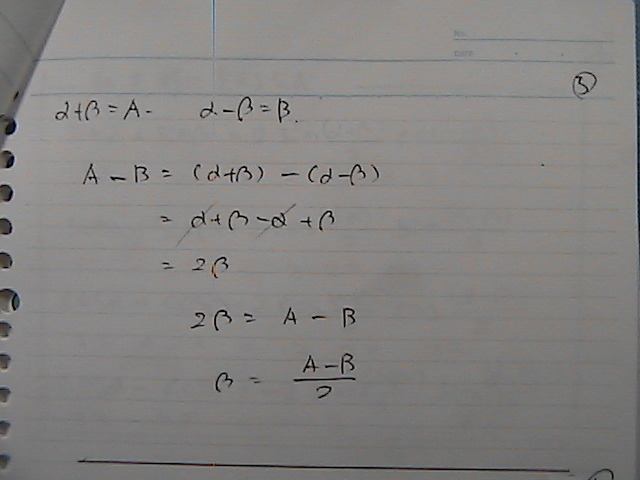 No.
Date
③
α+β=A. α-β=B.
A-B = (α+β)-(α-β)
= α+β-α+β
= 2β
2β = A-B
β = \frac{A-B}{2}